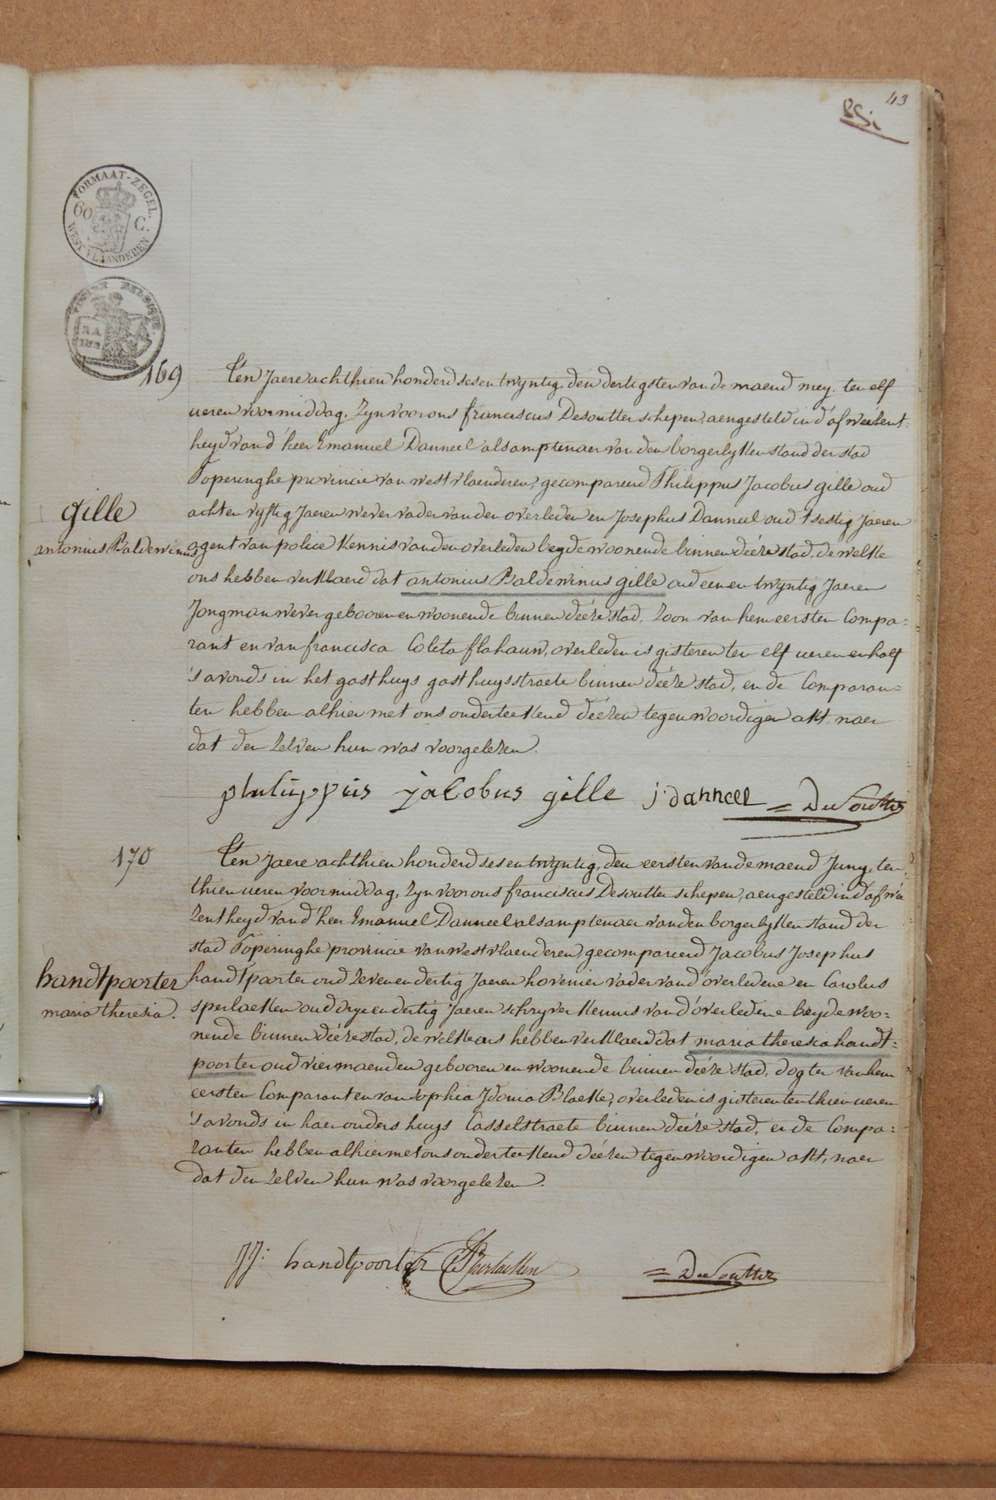 43
FORMAAT-ZEGEL
60 C.
WEST VLAANDEREN
169
Ten Jaere achthien honderd sesentwyntig, den dertigsten van de maend mey, ten elf
ueren voormiddag, Zyn voor ons franciscus Desoutter schepen, aengesteld in d'afweésent-
heyd van d'heer Emanuel Danneel als amptenaer van den borgerlyken stand der stad
Poperinghe provincie van westvlaenderen, gecompareerd Philippus Jacobus gille oud
gille
antonius Baldewinus
achtenvyftig Jaeren wever vader van den overleden en Josephus Danneel oud t'sestig Jaeren
agent van police Kennis van den overleden beyde woonende binnen déeze stad, de welke
ons hebben verklaerd dat antonius Baldewinus gille oud een en twyntig Jaeren
Jongman wever gebooren en woonende binnen déeze stad, Zoon van hem eersten Compa-
rant en van francisca Coleta flahauw, overleden is gisteren ten elf ueren en half
's avonds in het gasthuys gasthuysstraete binnen déeze stad, en de Comparan-
ten hebben alhier met ons onderteekend déezen tegenwoordigen akt naer
dat den zelven hun was voorgelezen.
philippus jacobus gille j danneel = DeSoutter
170
Ten Jaere achthien honderd sesentwyntig, den eersten van de maend Juny, ten
thien ueren voormiddag, Zyn voor ons franciscus Desoutter schepen, aengesteld in d'afwe
zentheyd van d'heer Emanuel Danneel als amptenaer van den borgerlyken stand der
stad Poperinghe provincie van westvlaenderen, gecompareerd Jacobus Josephus
handtpoorter
maria theresia.
handtpoorter oud zevenendertig Jaeren hovenier vader van d'overledene en Carolus
sperlaeken oud dryendertig Jaeren schryver Kennis van d'overledene beyde woo-
nende binnen déeze stad, de welke ons hebben verklaerd dat maria theresia handt-
poorter oud vier maenden gebooren en woonende binnen déeze stad, dogter van hem
eersten Comparant en van Sophia Idonia Blaeke, overleden is gisteren ten thien ueren
's avonds in haer ouders huys Casselstraete binnen déeze stad, en de Compa-
ranten hebben alhier met ons onderteekend déezen tegenwoordigen akt, naer
dat den zelven hun was voorgelezen.
JJ: handtpoorter C Sperlaeken = DeSoutter